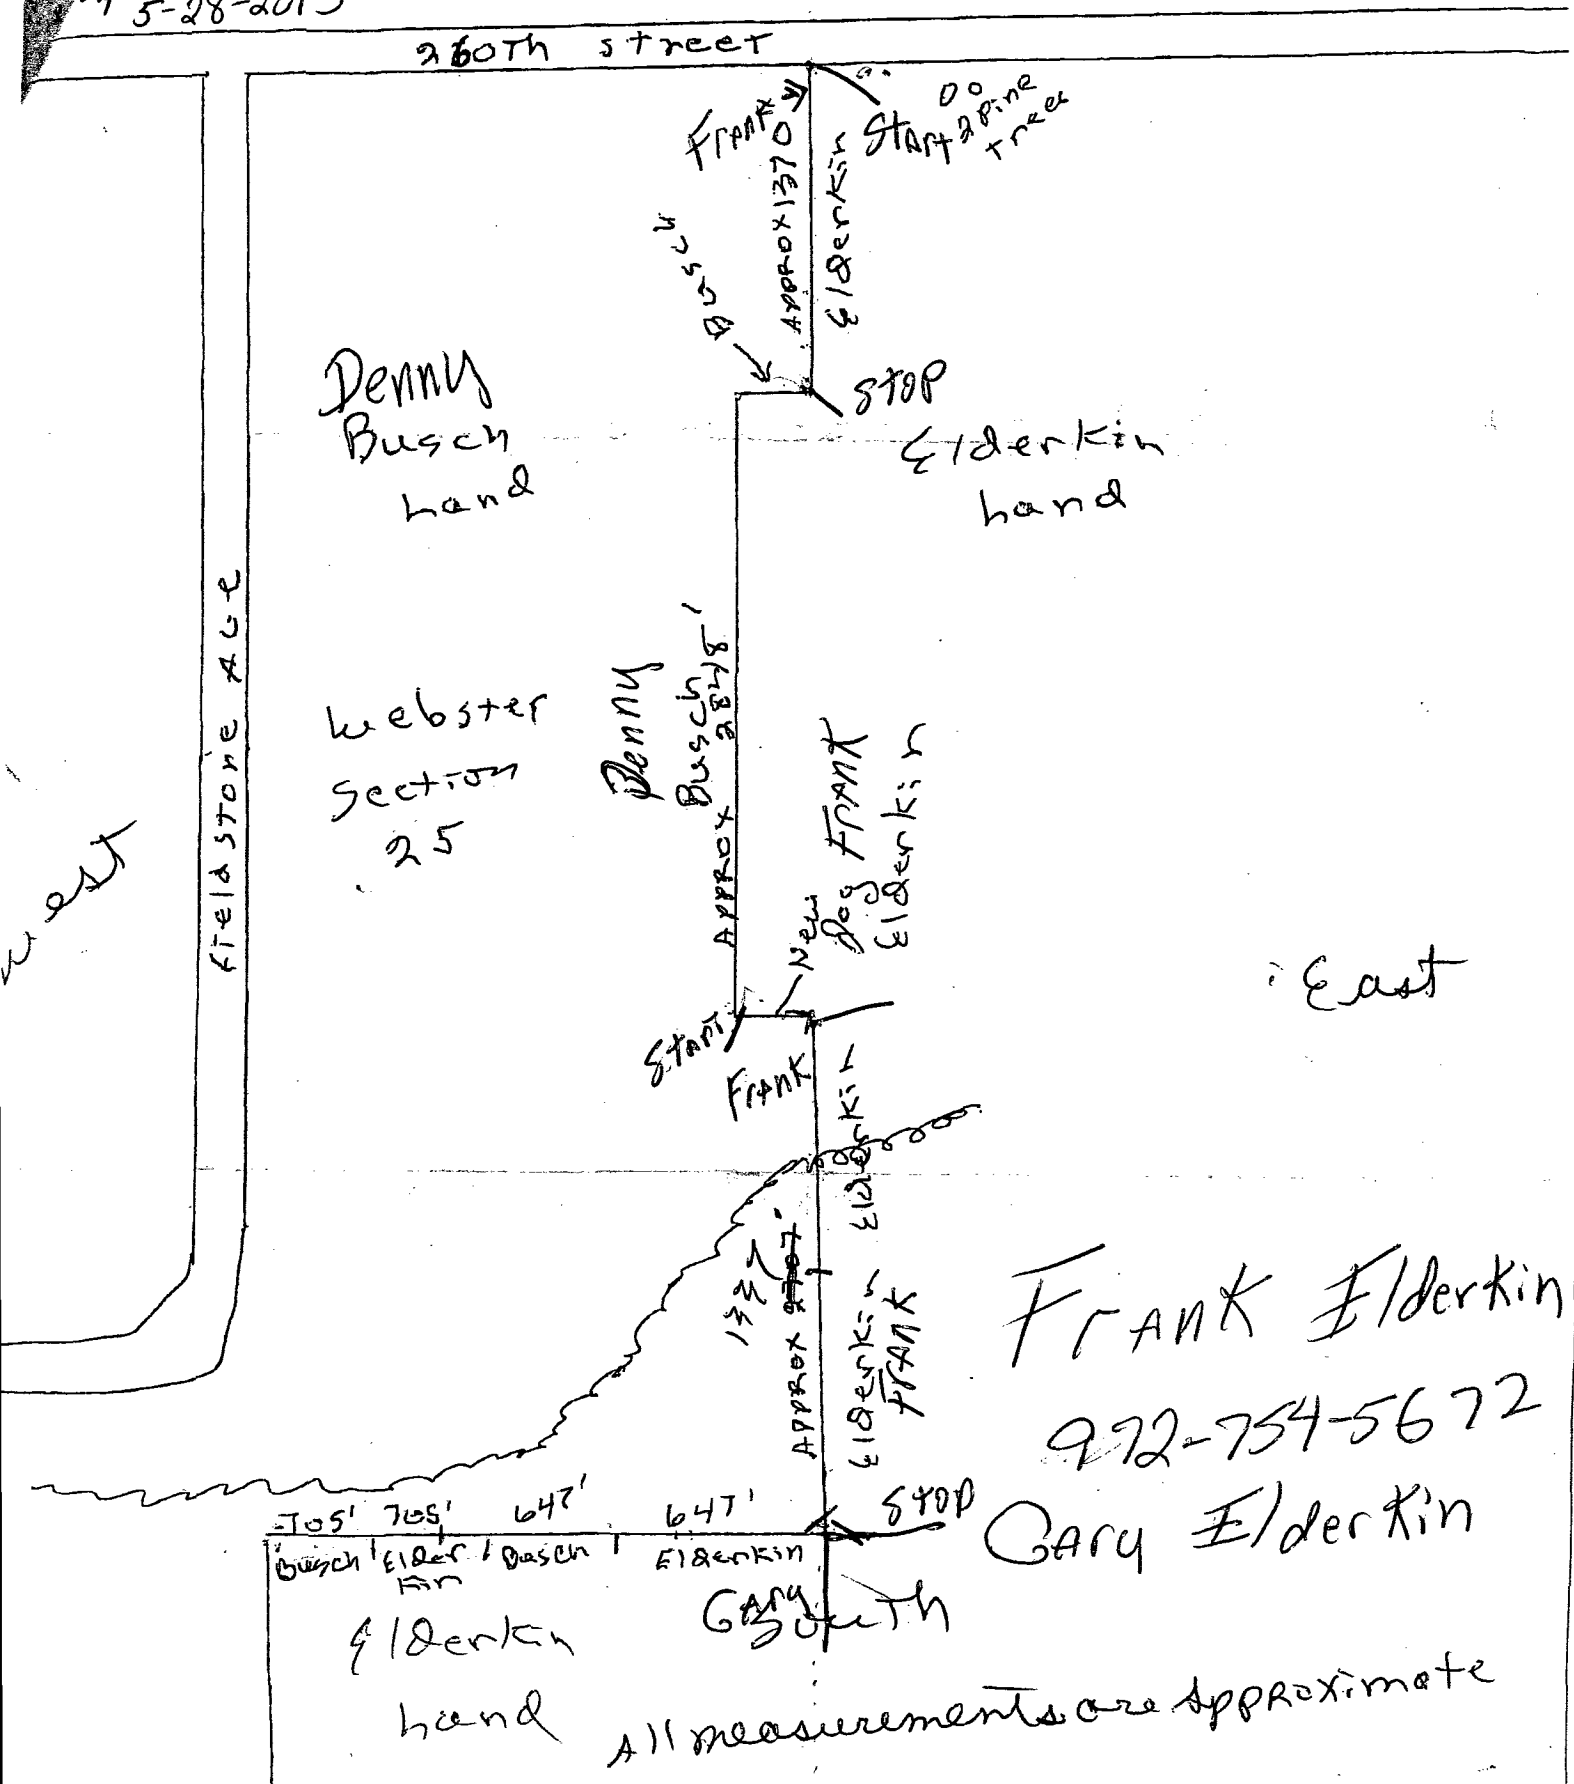 5-28-2015
260Th Street
Frank
Start 2 Pine
Trees
Approx 1370
Elderkin
Busch
Stop
Denny
Busch
Land
Elderkin
Land
Fieldstone Ave
Webster
Section
25
Denny
Busch
Approx 2848'
New
Dog Frank
Elderkin
West
East
Start
Frank
Elderkin
1337
Approx 2707'
Elderkin
Frank
Frank Elderkin
972-754-5672
Gary Elderkin
Stop
705' 705' 647' 647'
Busch Elder Busch Elderkin
kin
Gary
South
Elderkin
Land
All measurements are Approximate